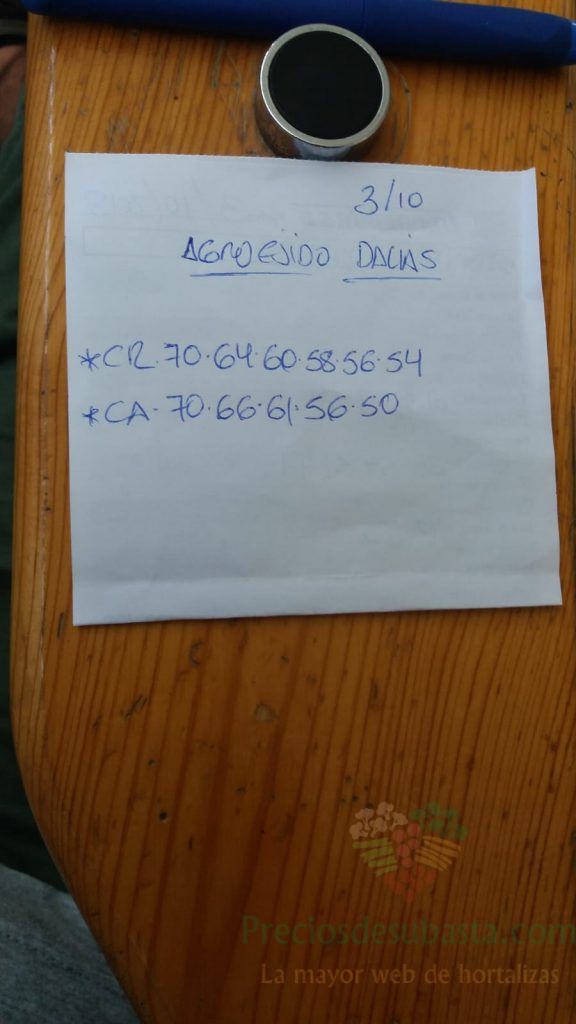 3/10
AGROEJIDO DALIAS
*CR.70.64.60.58.56.54
*CA.70.66.61.56.50
Preciosdesubasta.com
La mayor web de hortalizas